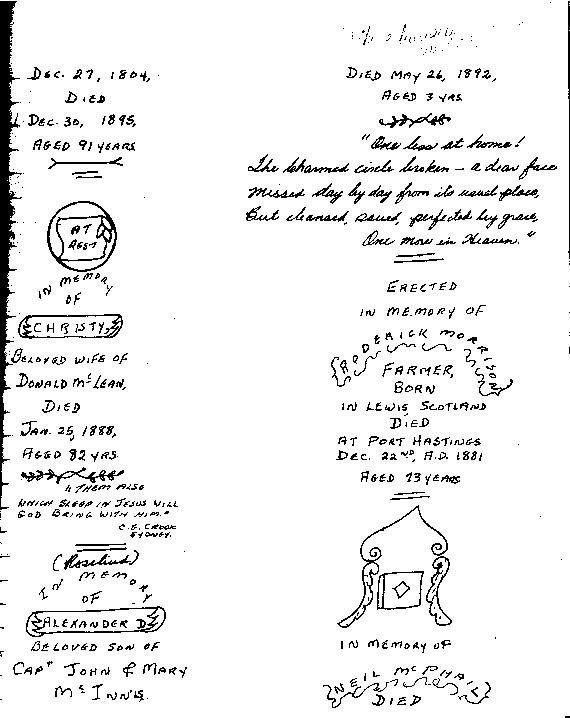 DEC. 27, 1804,
DIED
DEC. 30, 1895,
AGED 91 YEARS
AT
REST
IN MEMORY
OF
CHRISTY,
BELOVED WIFE OF
DONALD McLEAN,
DIED
JAN. 25, 1888,
AGED 82 YRS
"THEM ALSO
WHICH SLEEP IN JESUS WILL
GOD BRING WITH HIM."
C.E. CROOK
SYDNEY.
(Rosebud)
IN MEMORY
OF
ALEXANDER D
BELOVED SON OF
CAPT JOHN & MARY
McINNIS.
DIED MAY 26, 1892,
AGED 3 YRS
"One less at home!
The charmed circle broken - a dear face
Missed day by day from its usual place,
But cleansed, saved, perfected by grace,
One more in Heaven."
ERECTED
IN MEMORY OF
RODERICK MORRISON
FARMER,
BORN
IN LEWIS SCOTLAND
DIED
AT PORT HASTINGS
DEC. 22ND, A.D. 1881
AGED 73 YEARS
IN MEMORY OF
NEIL McPHAIL
DIED